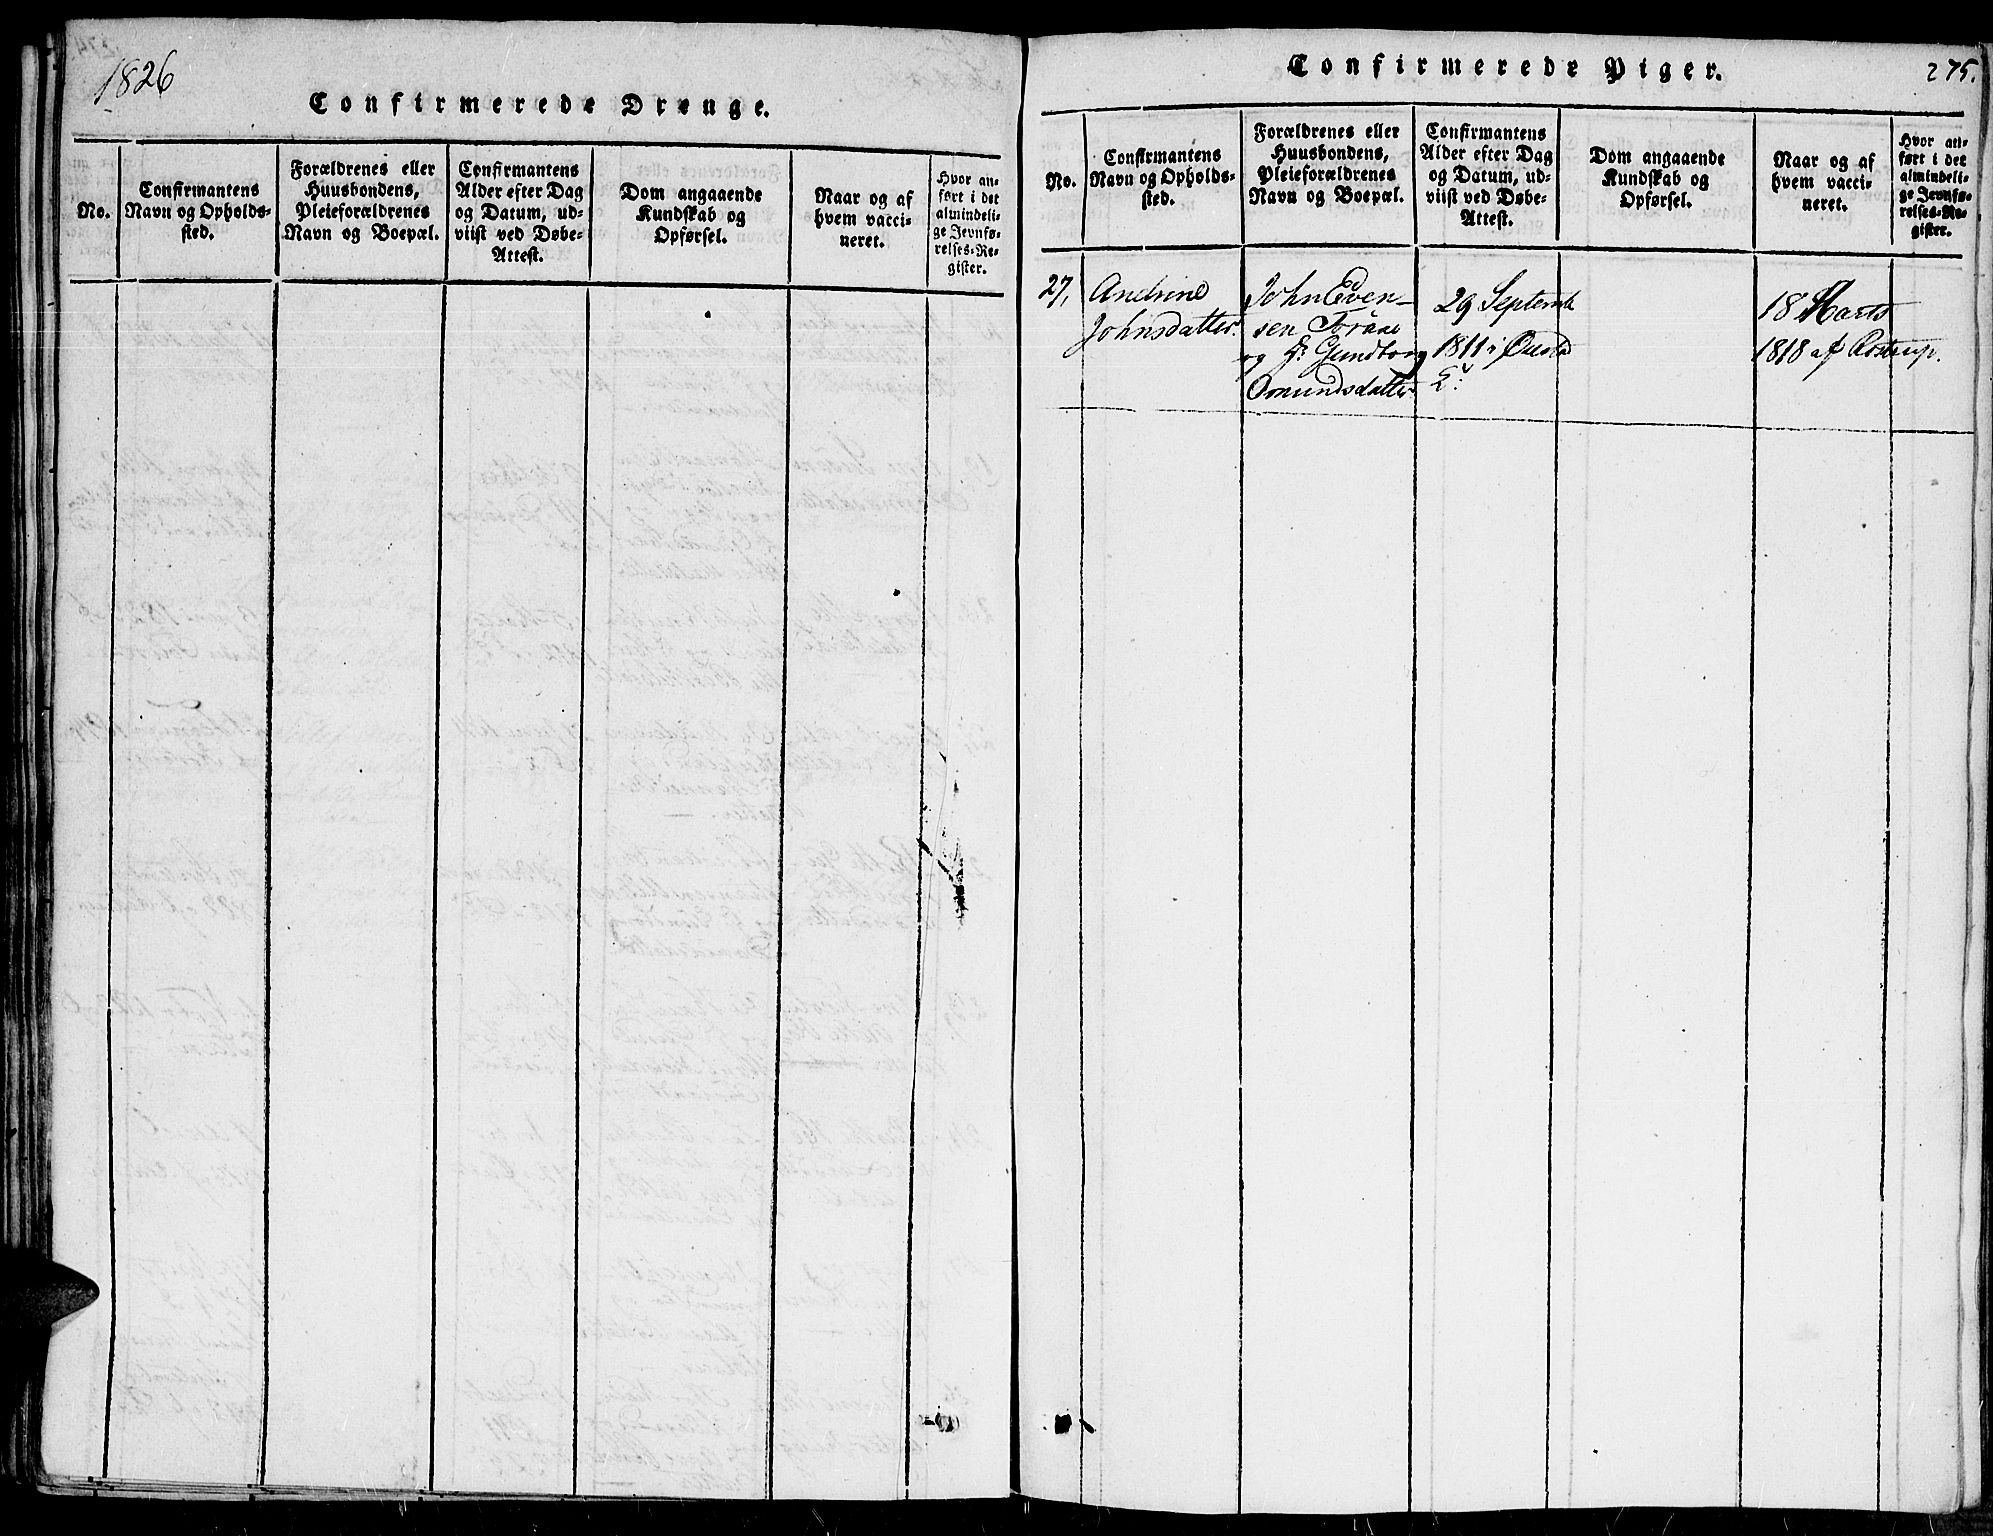 1826
Confirmerede Drenge.
No.
Confirmantens
Navn og Opholds-
sted.
Forældrenes eller
Huusbondens,
Pleieforældrenes
Navn og Boepæl.
Confirmantens
Alder efter Dag
og Datum, ud-
viist ved Døbe-
Attest.
Dom angaaende
Kundskab og
Opførsel.
Naar og af
hvem vacci-
neret.
Hvor an-
ført i det
almindeli-
ge Jevnfø-
relses-Re-
gister.
Confirmerede Piger.
275.
No.
Confirmantens
Navn og Opholds-
sted.
Forældrenes eller
Huusbondens,
Pleieforældrenes
Navn og Boepæl.
Confirmantens
Alder efter Dag
og Datum, ud-
viist ved Døbe-
Attest.
Dom angaaende
Kundskab og
Opførsel.
Naar og af
hvem vacci-
neret.
Hvor an-
ført i det
almindeli-
ge Jevnfø-
relses-Re-
gister.
27,
Andrine
Johnsdatter.
John Even-
sen
og Gundborg
Omundsdatter
29 Septemb
1811 i
18 Marts
1818 af Rostrup.